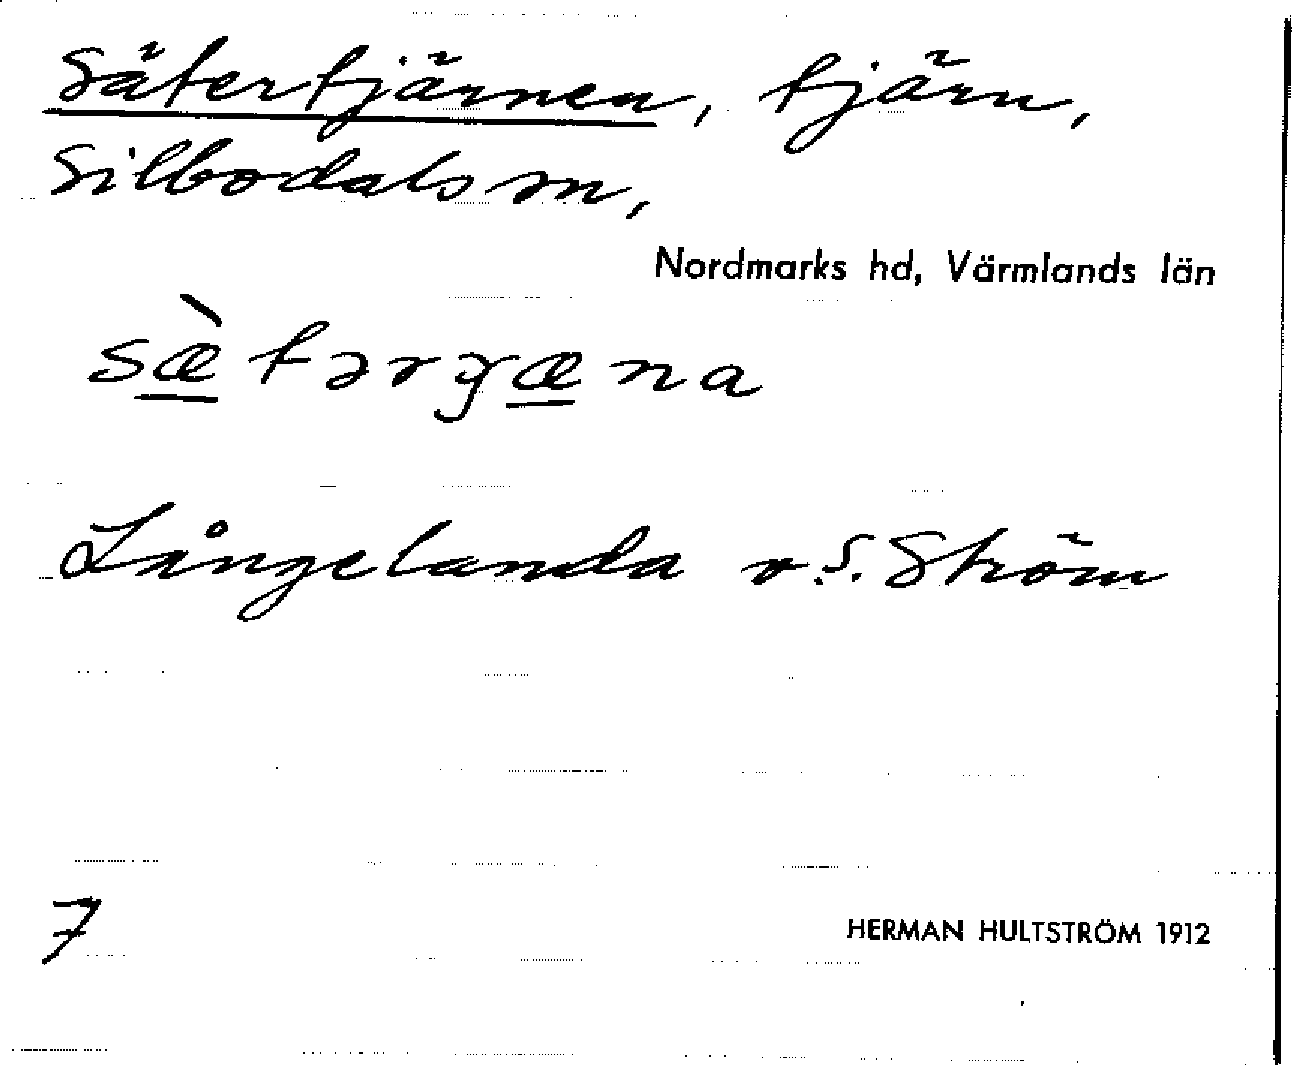 Sätertjärnen, tjärn,
Silbodals sn,
Nordmarks hd, Värmlands län
sæ̀tərɣæna
Långelanda v. S. Ström
7
HERMAN HULTSTRÖM 1912